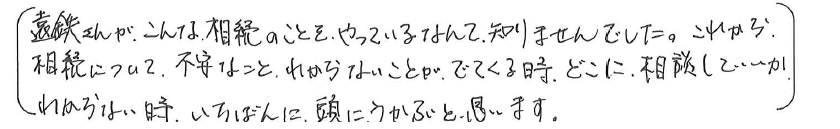 遠鉄さんが、こんな、相続のことを、やっているなんて、知りませんでした。これから、
相続について、不安なこと、わからないことが、でてくる時、どこに、相談していいか、
わからない時、いちばんに、頭に、うかぶと、思います。